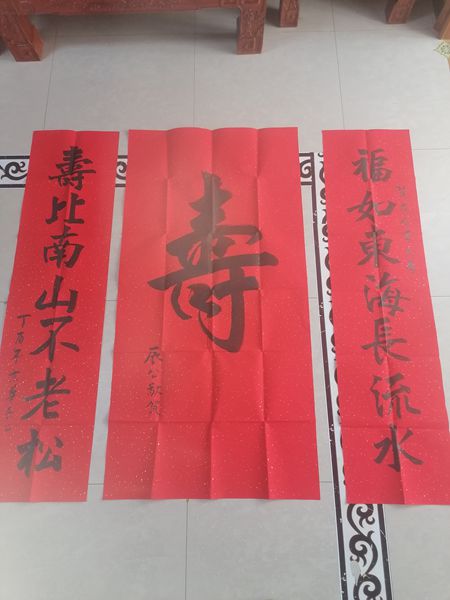 福如東海長流水
壽
辰公敬賀
壽比南山不老松